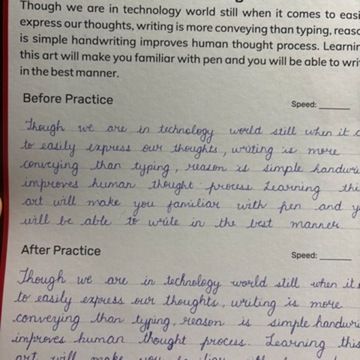 Though we are in technology world still when it comes to easi
express our thoughts, writing is more conveying than typing, reaso
is simple handwriting improves human thought process. Learnin
this art will make you familiar with pen and you will be able to wri
in the best manner.
Before Practice
Speed: ______
Though we are in technology world still when it c
to easily express our thoughts, writing is more
conveying than typing, reason is simple handwri
improves human thought process Learning thi
art will make you familiar with pen and y
will be able to write in the best manner.
After Practice
Speed: ______
Though we are in technology world still when it
to easily express our thoughts, writing is more
conveying than typing, reason is simple handwri
improves human thought process. Learning this
art will make you